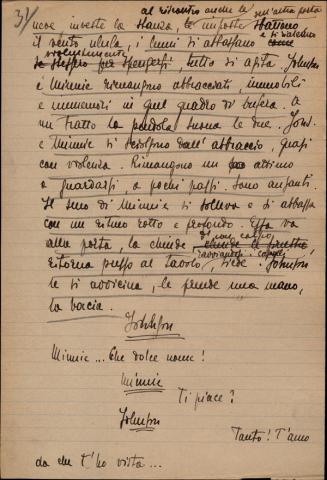 31
al riscontro anche le sull'altra porta
neve investe la stanza, le imposte sbattono
il vento ulula, i lumi si abbassano e si rialzano come
violentemente
se stessero per spengersi, tutto si agita. Johnson
e Minnie rimangono abbracciati, immobili
e in quel quadro di bufera. A
un tratto la pendola suona le due. Johns.
e Minnie si sciolgono dall'abbraccio, quasi
con violenza. Rimangono un attimo
a guardarsi, a pochi passi. Sono ansanti.
Il seno di Minnie si solleva e si abbassa
con un ritmo rotto e profondo. Essa va
alla porta, la chiude di un colpo, chiude le finestre
ravviandosi i capelli
ritorna presso al tavolo, siede. Johnson
le si avvicina, le prende una mano,
la bacia.
Johnson
Minnie... Che dolce nome!
Minnie
Ti piace?
Johnson
Tanto! T'amo
da che t'ho vista...